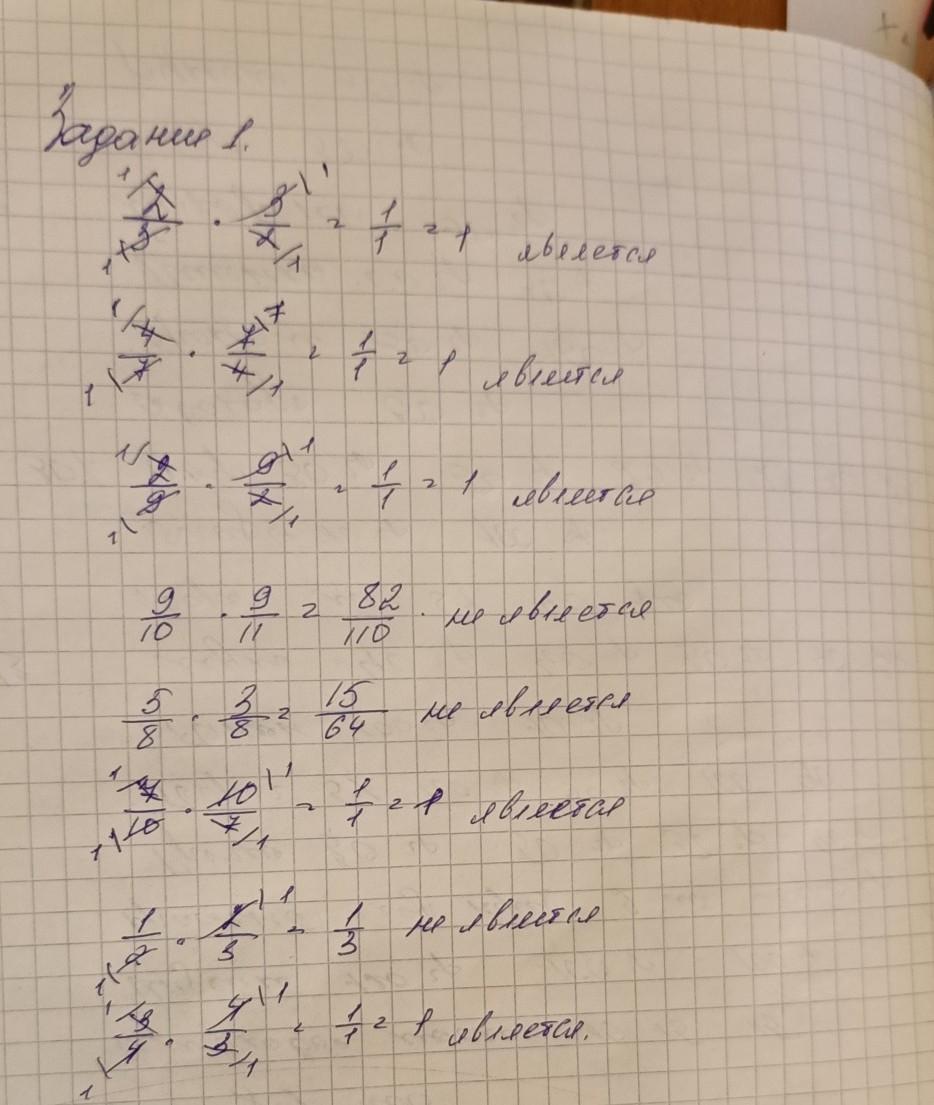 Задание 1.
2/3 · 3/2 = 1/1 = 1 является
4/7 · 7/4 = 1/1 = 1 является
2/9 · 9/2 = 1/1 = 1 является
9/10 · 9/11 = 82/110 . не является
5/8 · 3/8 = 15/64 не является
7/10 · 10/7 = 1/1 = 1 является
1/2 · 2/3 = 1/3 не является
3/4 · 4/3 = 1/1 = 1 является.